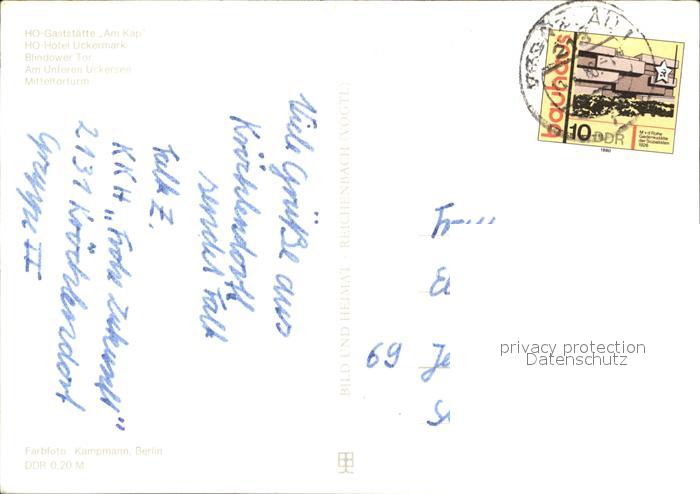 HO-Gaststätte „Am Kap"
HO-Hotel Uckermark
Blindower Tor
Am Unteren Uckersee
Mitteltorturm
Viele Grüße aus
Kröchlendorff
sendet Falk
Falk Z.
KKH „Frohe Zukunft"
2131 Kröchlendorf
Gruppe II
Farbfoto Kampmann, Berlin
DDR 0,20 M
BILD UND HEIMAT · REICHENBACH (VOGTL)
bauhaus
10 DDR
M v d Rohe
Gedenkstätte
der Sozialisten
1926
1980
69 Je
privacy protection
Datenschutz